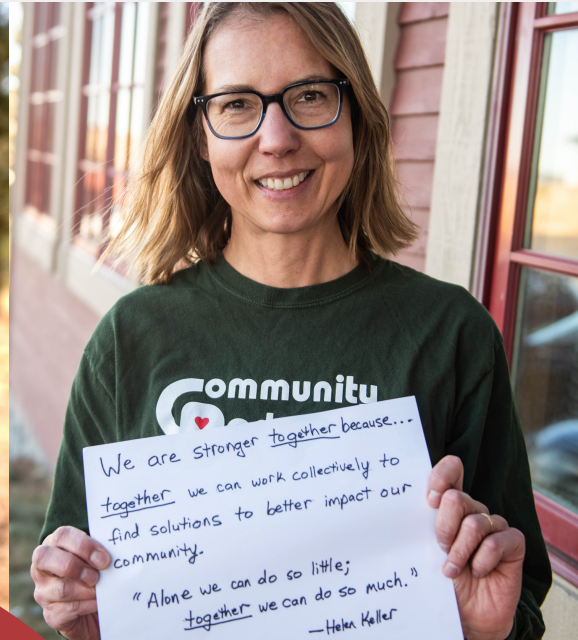 Community
We are stronger together because...
together we can work collectively to
find solutions to better impact our
community.
"Alone we can do so little;
together we can do so much."
—Helen Keller